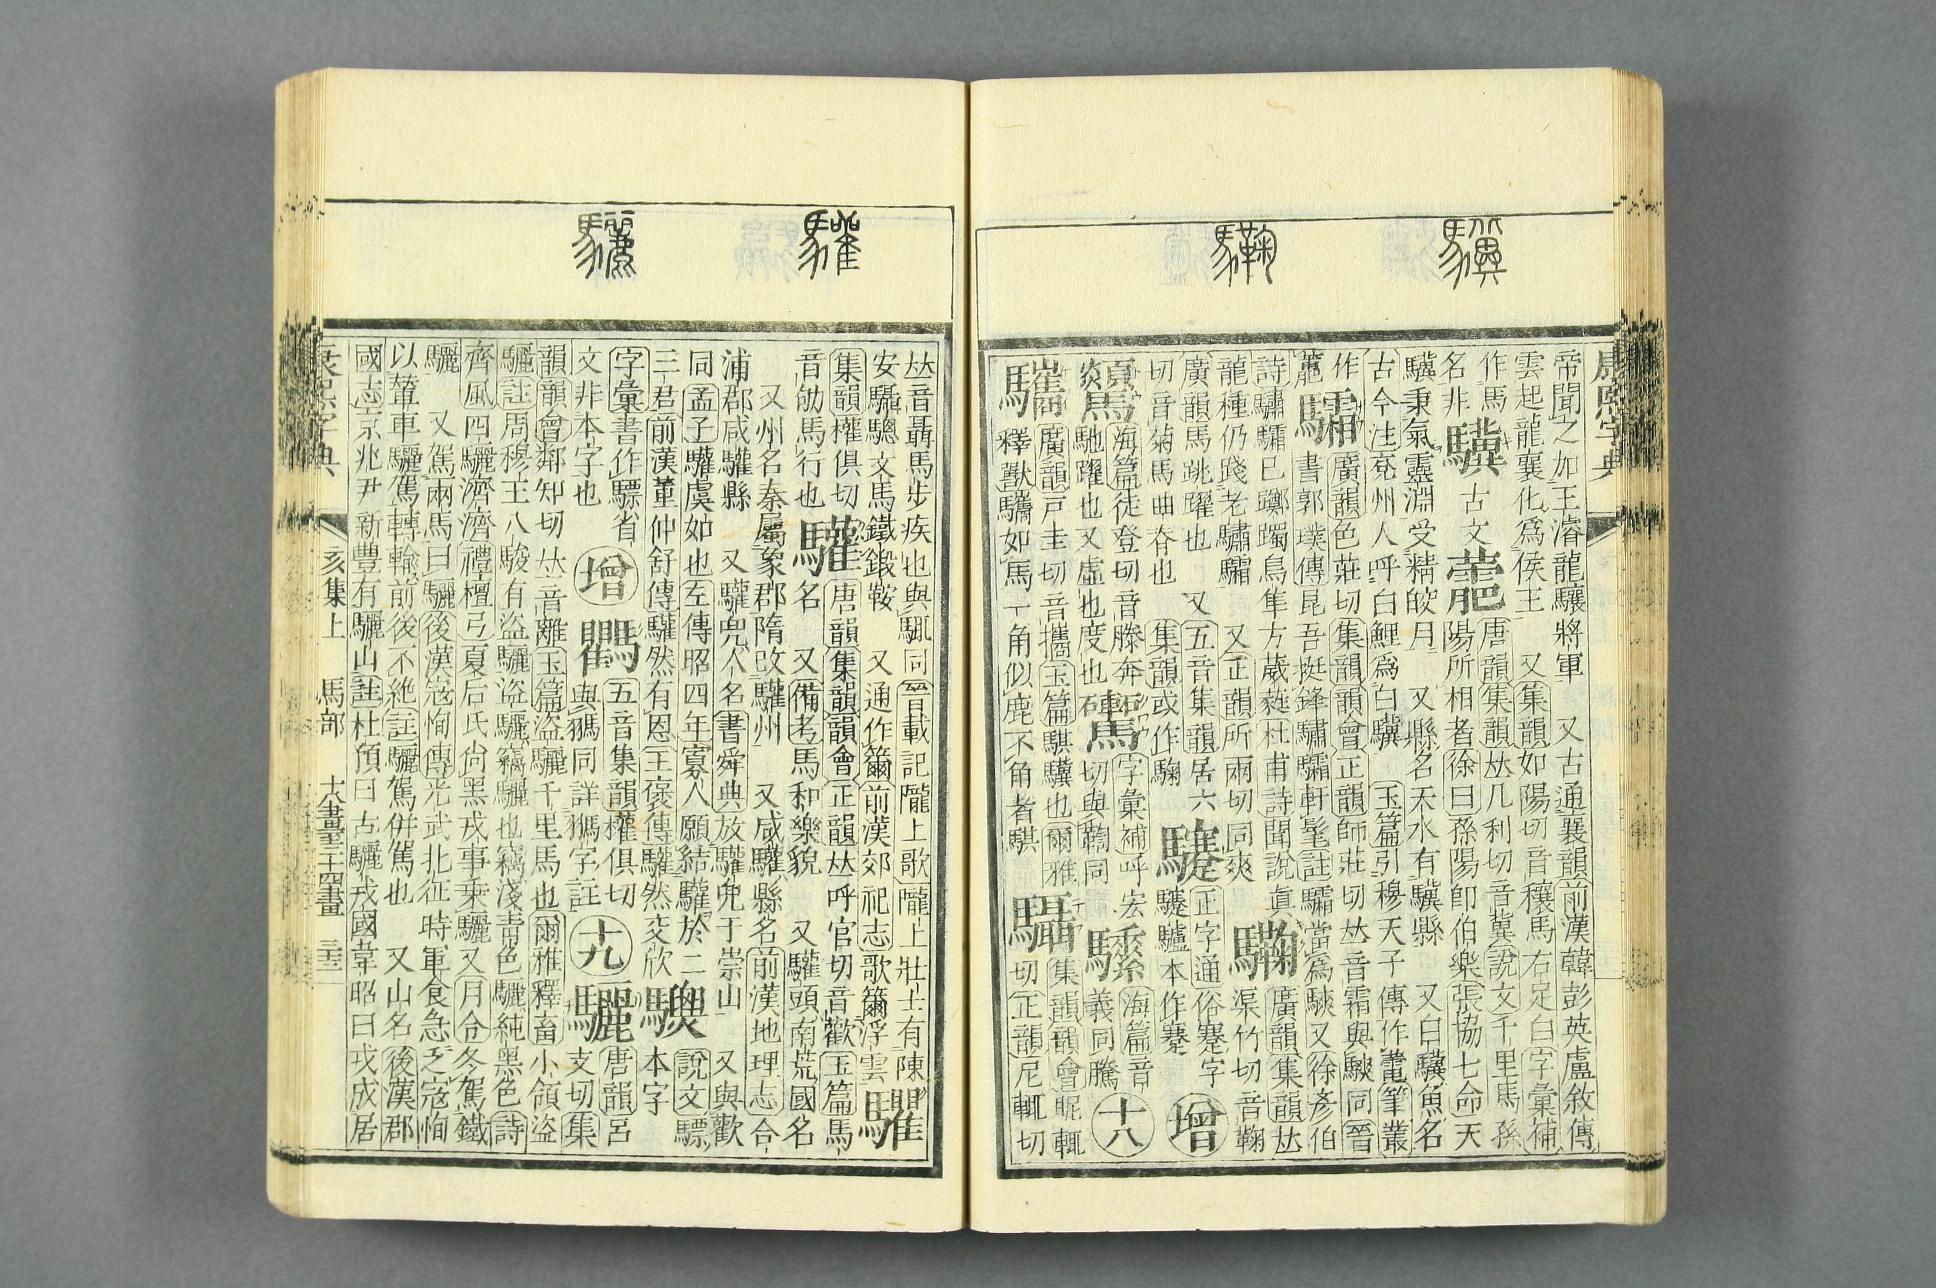 驥
䮼
康熙字典
帝聞之加王濬龍驤將軍 又古通襄韻前漢韓彭英盧敘傳
雲起龍襄化爲侯王 又集韻如陽切音穰馬右足白字彙補
作馬
名非
驥
古文
唐韻集韻𠀤几利切音冀說文千里馬孫
陽所相者徐曰孫陽卽伯樂張協七命天
驥秉氣靈淵受精皎月 又縣名天水有驥縣 又白驥魚名
古今注兗州人呼白鯉爲白驥 玉篇引穆天子傳作 筆叢
作
驦
廣韻色莊切集韻韻會正韻師莊切𠀤音霜與騻同晉
書郭璞傳昆吾挺鋒驌驦軒髦註驦當爲騻又徐彥伯
詩驌驦已躑躅鳥隼方葳蕤杜甫詩聞說眞
龍種仍殘老驌驦 又正韻所兩切同爽
廣韻集韻𠀤
渠竹切音鞠
廣韻馬跳躍也 又五音集韻居六
切音菊馬曲脊也 集韻或作䮗
正字通俗蹇字
驢本作蹇
增
海篇徒登切音滕奔
馳躍也又虛也度也
字彙補呼宏
切與鞫同
海篇音
義同騰
十八
驨
廣韻戶圭切音攜玉篇騏驥也爾雅
釋獸驨如馬一角似鹿不角者騏
集韻韻會昵輒
切正韻尼輒切
驩
驪
𠀤音聶馬步疾也與䭃同晉載記隴上歌隴上壯士有陳
安驤驄文馬鐵鍛鞍 又通作籋前漢郊祀志歌籋浮雲
集韻權俱切
音劬馬行也
驩
唐韻集韻韻會正韻𠀤呼官切音歡玉篇馬
名 又備考馬和樂貌 又驩頭南荒國名
又州名秦屬象郡隋改驩州 又咸驩縣名前漢地理志合
浦郡咸驩縣 又驩兜人名書舜典放驩兜于崇山 又與歡
同孟子驩虞如也左傳昭四年寡人願結驩於二
三君前漢董仲舒傳驩然有恩王褒傳驩然交欣
說文驃
本字
字彙書作驃省
文非本字也
增
五音集韻權俱切
與㺘同詳㺘字註
十九
驪
唐韻呂
支切集
韻韻會鄰知切𠀤音離玉篇盜驪千里馬也爾雅釋畜小領盜
驪註周穆王八駿有盜驪盜驪竊驪也竊淺靑色驪純黑色詩
齊風四驪濟濟禮檀弓夏后氏尙黑戎事乘驪又月令冬駕鐵
驪 又駕兩馬曰驪後漢寇恂傳光武北征時軍食急乏寇恂
以輦車驪駕轉輸前後不絶註驪駕併駕也 又山名後漢郡
國志京兆尹新豐有驪山註杜預曰古驪戎國韋昭曰戎成居
康熙字典
亥集上
馬部